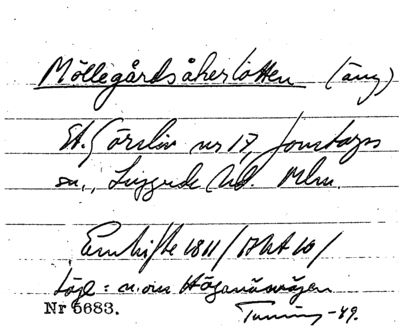 Möllegårdsåkerlotten (äng)
St. Görslöv nr 17, Jonstorps
sn., Luggude hd. Mlm.
Enskifte 1811 / Akt 10 /
Läge: n. om Höganäsvägen
Nr 5683. Tuning -49.